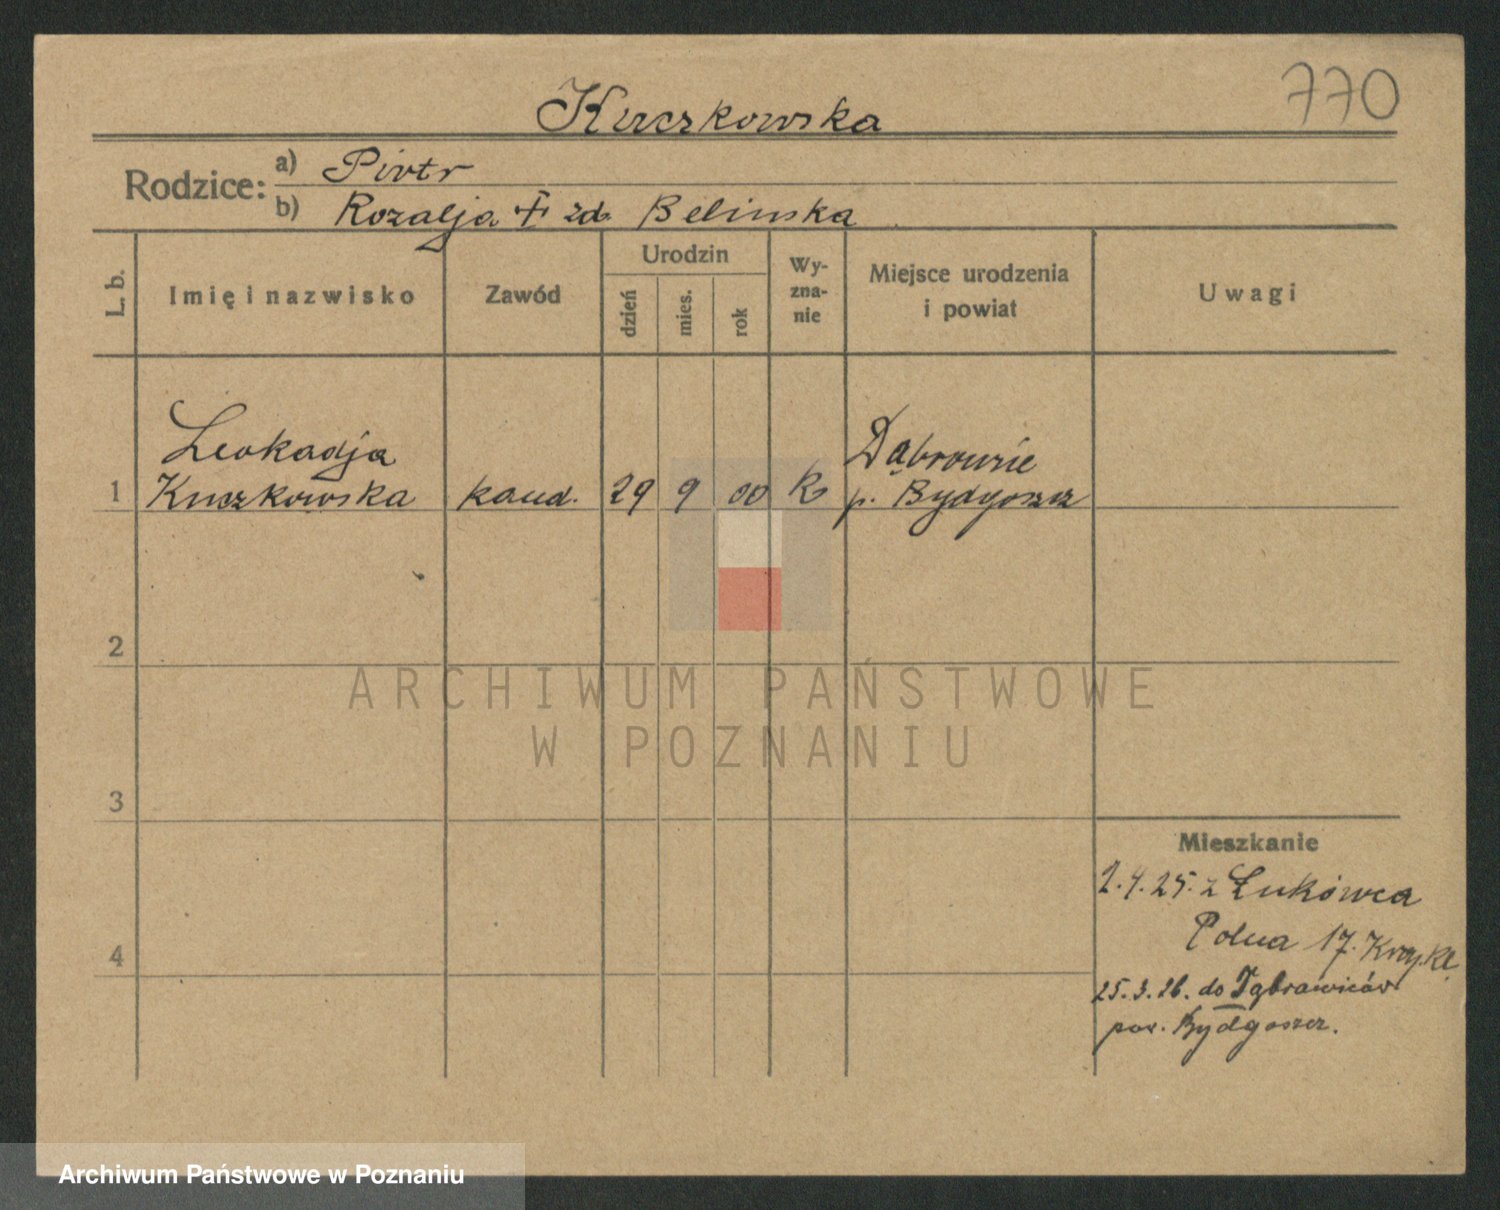 770
Kuczkowska
Rodzice: a) Piotr
b) Rozalja + zd. Belinska
L. b.
Imię i nazwisko
Zawód
Urodzin
dzień
mies.
rok
Wy-
zna-
nie
Miejsce urodzenia
i powiat
Uwagi
Leokadja
Dąbrownie
1 Kuczkowska kand. 29 9 00 K p. Bydgoszcz
2
ARCHIWUM PAŃSTWOWE
W POZNANIU
3
Mieszkanie
2.4.25. z Łukówca
Polna 17.
4
25.3.26. do
pow. Bydgoszcz.
Archiwum Państwowe w Poznaniu